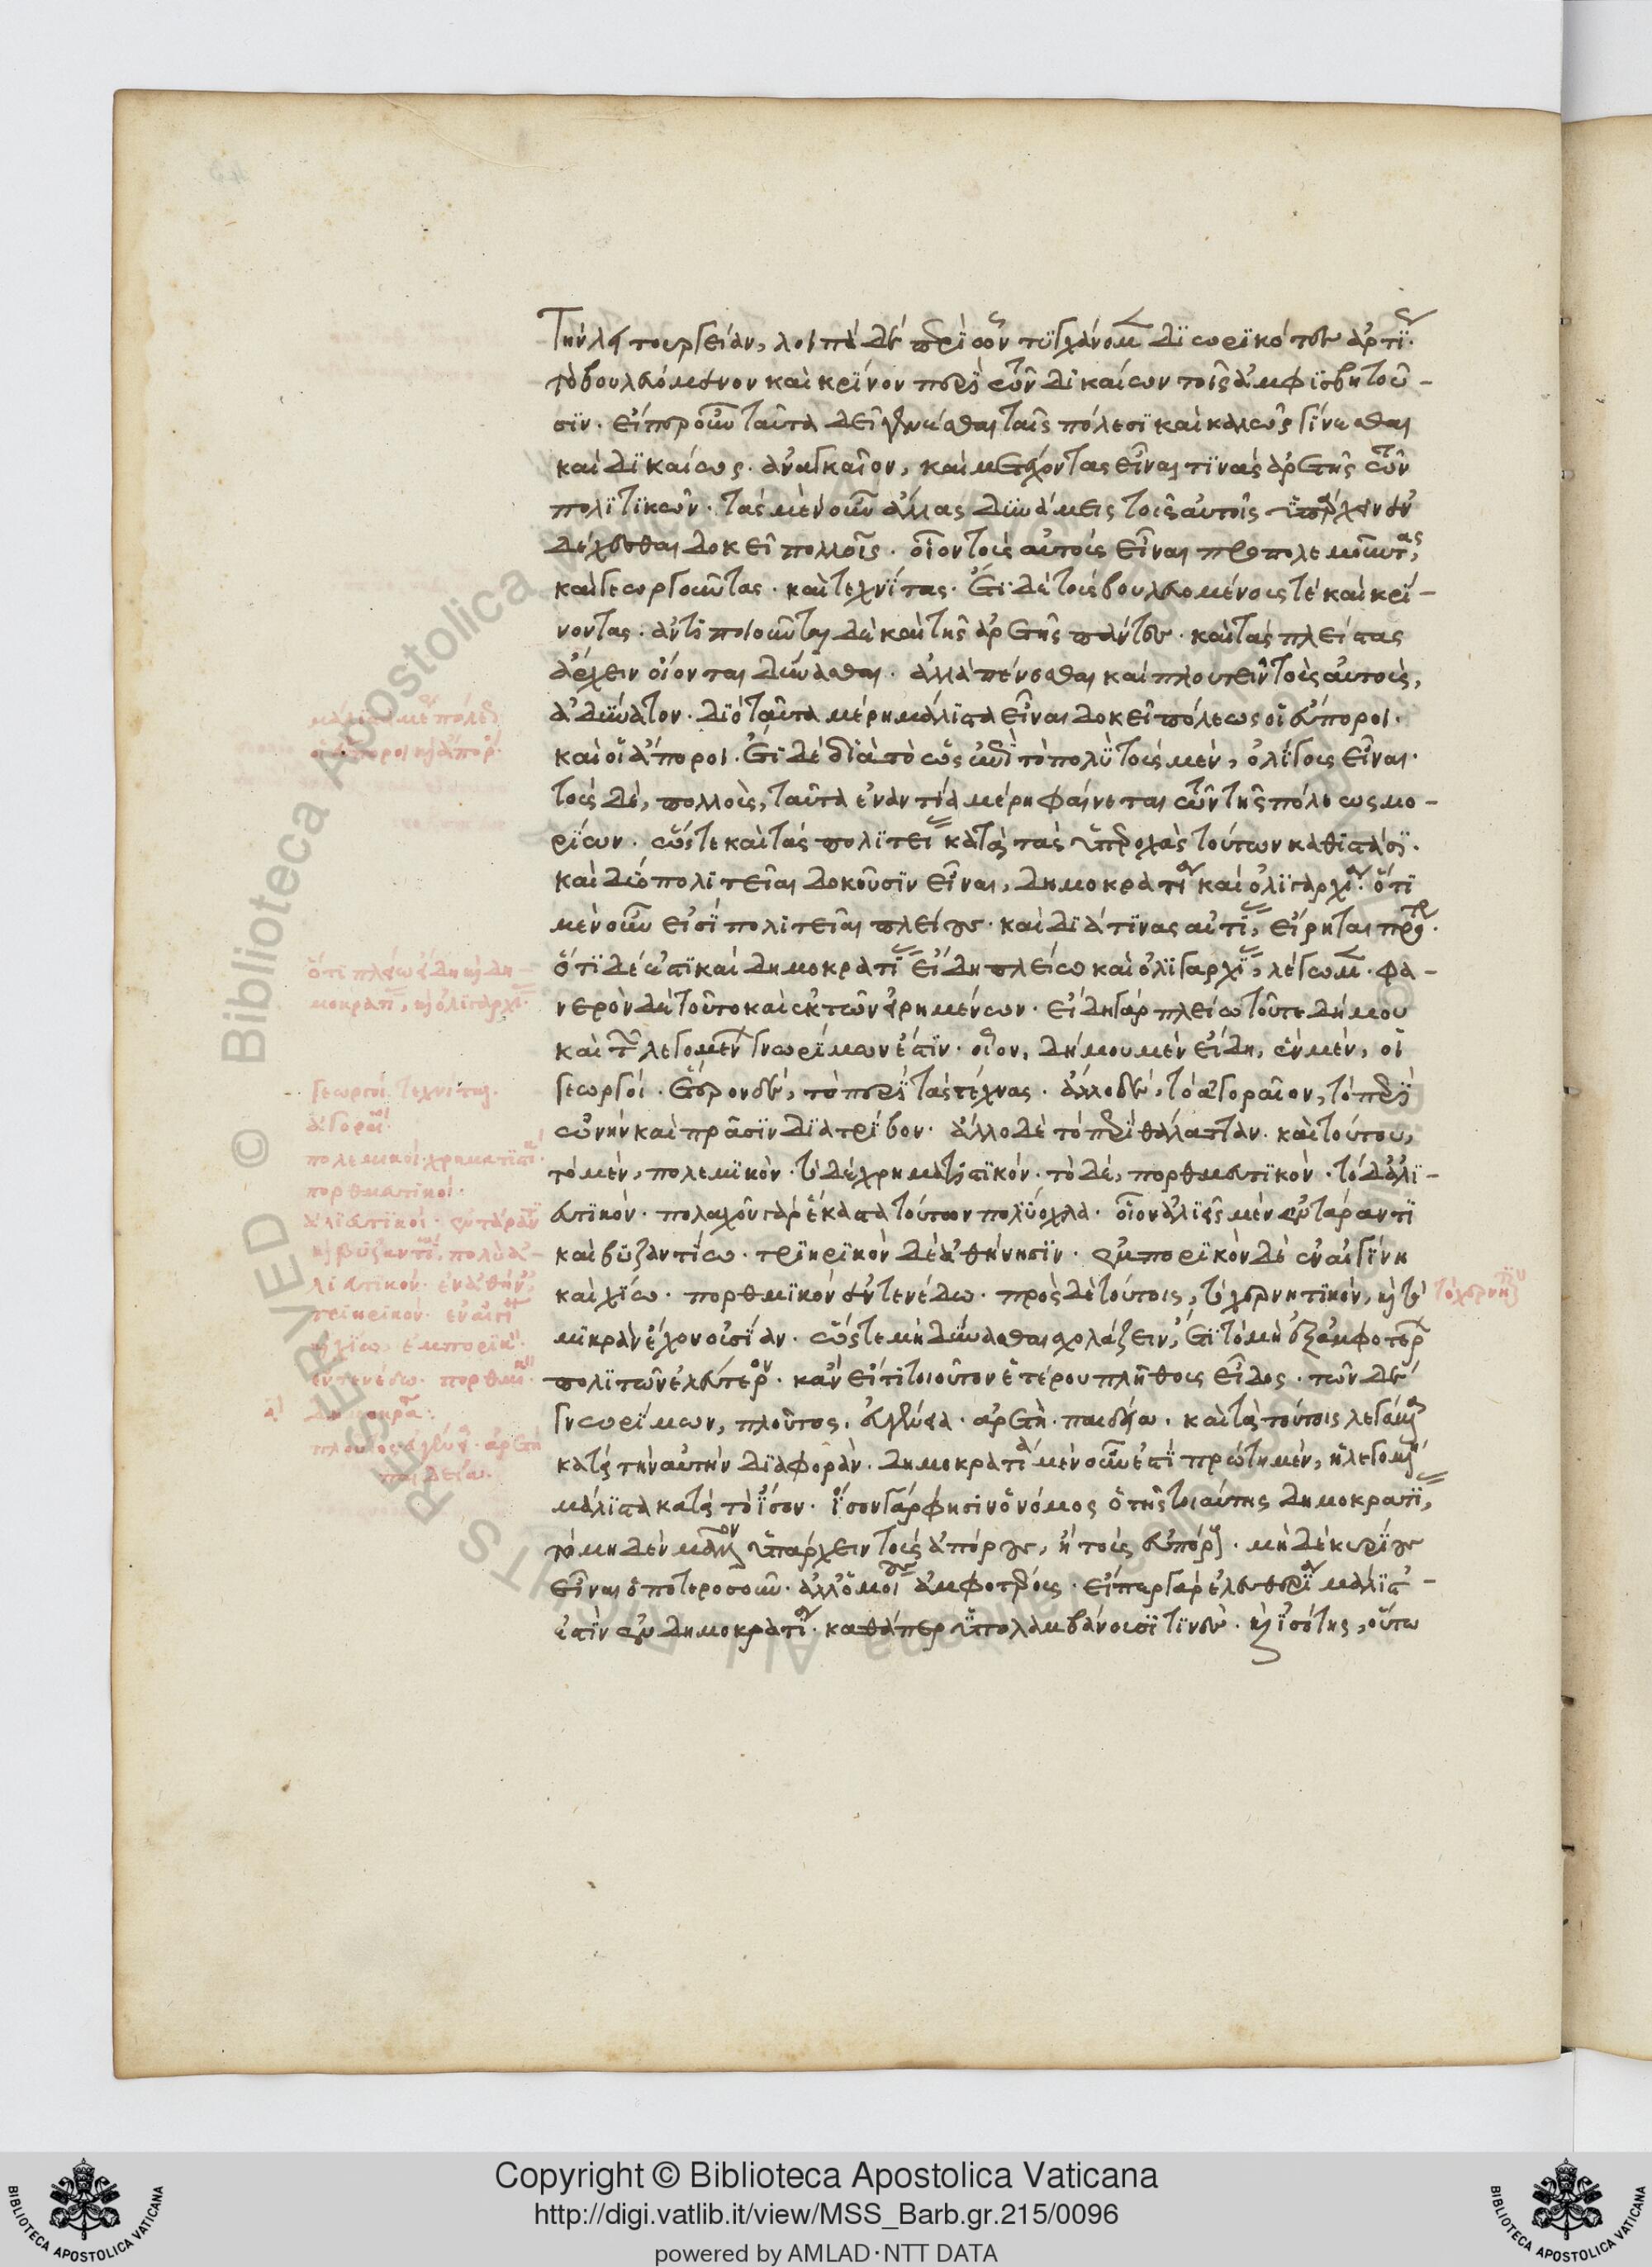 τὴν λειτουργείαν, λοιπὰ δὲ περὶ ὧν τυγχάνομεν διωρικότες ἀρτίως·
τὸ βουλευόμενον καὶ κρίνον περὶ τῶν δικαίων τοῖς ἀμφισβητοῦ-
σιν· εἴπερ οὖν ταῦτα δεῖ γενέσθαι ταῖς πόλεσι καὶ καλῶς γίνεσθαι
καὶ δικαίως· ἀναγκαῖον, καὶ μετέχοντας εἶναι τινὰς ἀρετῆς τῶν
πολιτικῶν· τὰς μὲν οὖν ἄλλας δυνάμεις τοῖς αὐτοῖς ὑπάρχειν ἐν
δέχεσθαι δοκεῖ πολλοῖς· οἷον τοὺς αὐτοὺς εἶναι προπολεμοῦντας,
καὶ γεωργοῦντας· καὶ τεχνίτας· ἔτι δὲ τοὺς βουλευομένους τὲ καὶ κρί-
νοντας· ἀντιποιοῦνται δὲ καὶ τῆς ἀρετῆς πάντες· καὶ τὰς πλείστας
ἄρχειν οἴονται δύνασθαι· ἀλλὰ πένεσθαι καὶ πλουτεῖν τοὺς αὐτοὺς,
ἀδύνατον· διὸ ταῦτα μέρη μάλιστα εἶναι δοκεῖ πόλεως οἱ εὔποροι·
καὶ οἱ ἄποροι· ἔτι δὲ διὰ τὸ ὡς ἐπὶ τὸ πολὺ τοὺς μὲν, ὀλίγους εἶναι·
τοὺς δὲ, πολλοὺς, ταῦτα ἐναντία μέρη φαίνεται τῶν τῆς πόλεως μο-
ρίων· ὥστε καὶ τὰς πολιτείας κατὰ τὰς ὑπεροχὰς τούτων καθιστᾶσι·
καὶ δύο πολιτεῖαι δοκοῦσιν εἶναι, δημοκρατία καὶ ὀλιγαρχία· ὅτι
μὲν οὖν εἰσὶ πολιτεῖαι πλείους· καὶ διὰ τίνας αἰτίας, εἴρηται πρότερον·
ὅτι δέ ἐστι καὶ δημοκρατίας εἴδη πλείω καὶ ὀλιγαρχίας, λέγωμεν· φα-
νερὸν δὲ τοῦτο καὶ ἐκ τῶν εἰρημένων· εἴδη γὰρ πλείω τοῦτε δήμου
καὶ τῶν λεγομένων γνωρίμων ἐστίν· οἷον, δήμου μὲν εἴδη, ἓν μὲν, οἱ
γεωργοί· ἕτερον δὲ, τὸ περὶ τὰς τέχνας· ἄλλο δὲ, τὸ ἀγοραῖον, τὸ περὶ
ὠνὴν καὶ πρᾶσιν διατρίβον· ἄλλο δὲ τὸ περὶ θάλατταν· καὶ τούτου,
τὸ μὲν, πολεμικὸν· τὸ δὲ χρηματιστικόν· τὸ δὲ, πορθμευτικὸν· τὸ δ' ἁλι-
ευτικὸν· πολαχοῦ γὰρ ἕκαστα τούτων πολύοχλα· οἷον ἁλιεῖς μὲν ἐν τάραντι
καὶ βυζαντίω· τριηρικὸν δὲ ἀθήνησιν· ἐμπορικὸν δὲ ἐν αἰγίνη
καὶ χίω· πορθμικὸν ἐν τενέδω· πρὸς δὲ τούτοις, τὸ χερνητικὸν, καὶ τὸ
μικρὰν ἔχον οὐσίαν· ὥστε μὴ δύνασθαι σχολάζειν, ἔτι τὸ μὴ ἐξ ἀμφοτέρων
πολιτῶν ἐλεύτερον· κἂν εἴτι τοιοῦτον ἑτέρου πλήθους εἶδος· τῶν δὲ
γνωρίμων, πλοῦτος, εὐγένεια· ἀρετὴ· παιδεία· καὶ τὰ τούτοις λεγόμενα
κατὰ τὴν αὐτὴν διαφορὰν· δημοκρατία μὲν οὖν ἐστὶ πρώτη μὲν, ἡ λεγομένη
μάλιστα κατὰ τὸ ἴσον· ἴσον γάρ φησιν ὁ νόμος ὁ τῆς τοιαύτης δημοκρατίας,
τὸ μηδὲν μᾶλλον ὑπάρχειν τοὺς ἀπόρους, ἢ τοὺς εὐπόρους· μηδὲ κυρίους
εἶναι ὁποτεροσοῦν· ἀλλ' ὁμοίους ἀμφοτέρους· εἴπερ γὰρ ἐλευθερία μάλιστ'
ἐστὶν ἐν δημοκρατία· καθάπερ ὑπολαμβάνουσί τινες· καὶ ἰσότης, οὕτω
ὅτι πλείω εἴδη καὶ δη-
μοκρατίας, καὶ ὀλιγαρχίας·
γεωργοί· τεχνίται·
ἀγοραῖοι·
πολεμικοί· χρηματιστικοί·
πορθμευτικοί·
ἁλιευτικοί· ἐν τάραντι
καὶ βυζαντίω, πολὺ ἁ-
λιευτικόν· ἐν ἀθήναις
τριηρικόν· ἐν αἰγίνη
καὶ χίω ἐμπορικόν·
ἐν τενέδω· πορθμικόν·
πλοῦτος εὐγένεια· ἀρετὴ
παιδεία·
τὸ χερνητικόν
RISERVED © Biblioteca Apostolica Vaticana
Copyright © Biblioteca Apostolica Vaticana
http://digi.vatlib.it/view/MSS_Barb.gr.215/0096
powered by AMLAD·NTT DATA
BIBLIOTECA APOSTOLICA VATICANA
BIBLIOTECA APOSTOLICA VATICANA